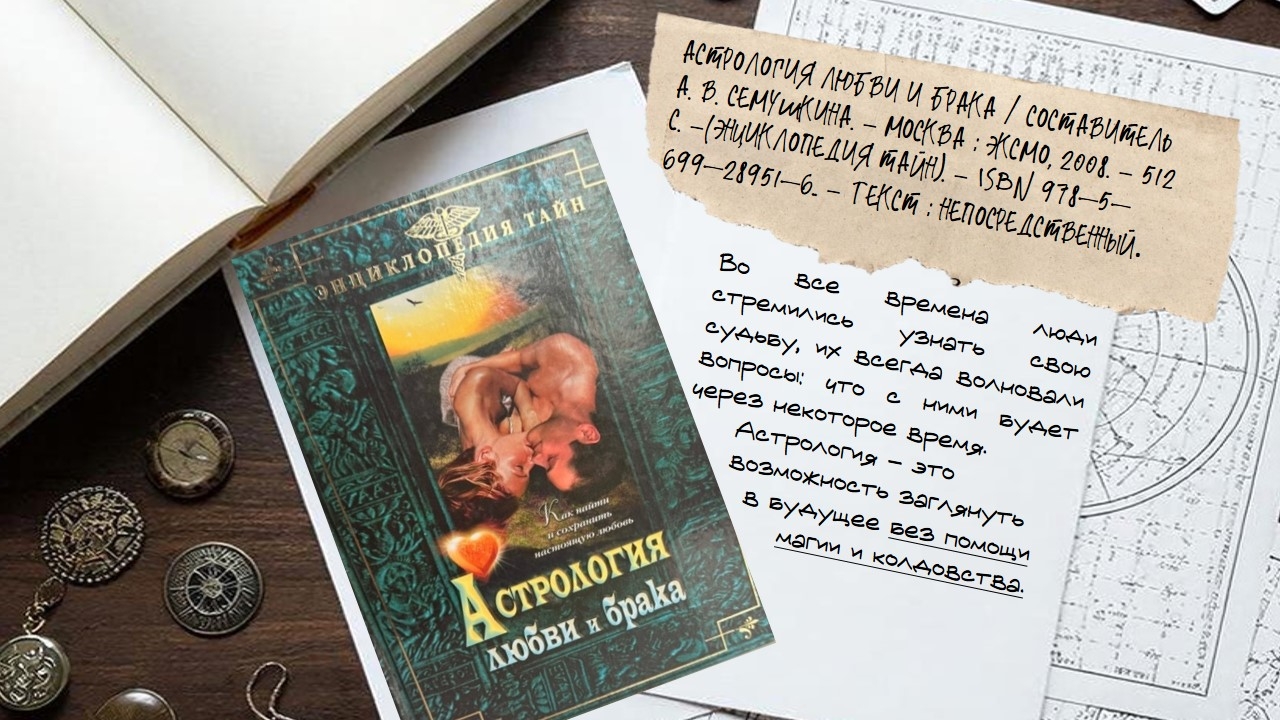 АСТРОЛОГИЯ ЛЮБВИ И БРАКА / СОСТАВИТЕЛЬ
А. В. СЕМУШКИНА. – МОСКВА : ЭКСМО, 2008. – 512
С. –(ЭНЦИКЛОПЕДИЯ ТАЙН). – ISBN 978–5–
699–28951–6. – ТЕКСТ : НЕПОСРЕДСТВЕННЫЙ.
Во все времена люди
стремились узнать свою
судьбу, их всегда волновали
вопросы: что с ними будет
через некоторое время.
Астрология – это
возможность заглянуть
в будущее без помощи
магии и колдовства.
ЭНЦИКЛОПЕДИЯ ТАЙН
Как найти
и сохранить
настоящую любовь
Астрология
любви и брака